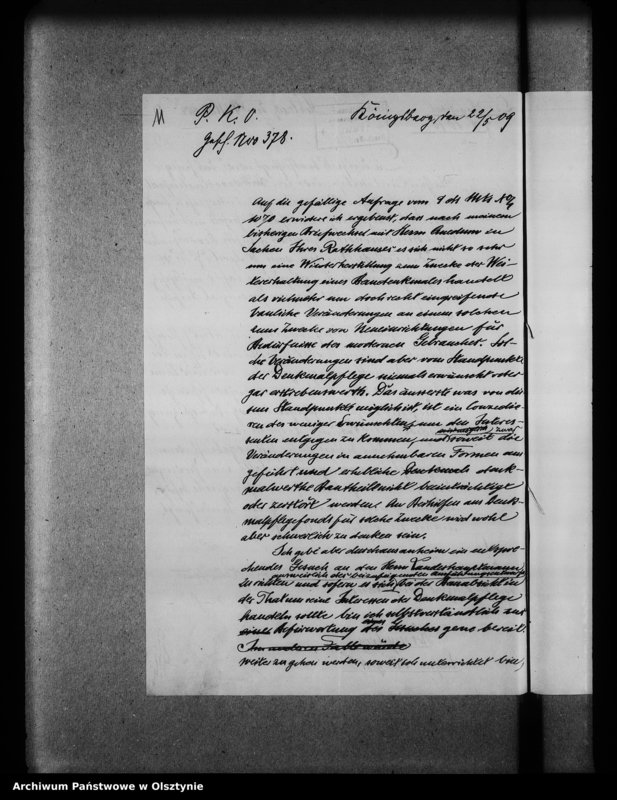 M
P. K. O.
Königsberg, den 22/5 09
Gesch. Nro 378.
Auf die gefällige Anfrage vom 9 ds Mts No
1070 erwidere ich ergebenst, dass nach meinem
bisherigen Briefwechsel mit Herrn in
Sachen Ihres Rathhauses es sich nicht so sehr
um eine Wiederherstellung zum Zwecke der Wei-
tererhaltung eines Baudenkmales handelt
als vielmehr um doch recht eingreifende
bauliche Veränderungen an einem solchen
zum Zwecke von Neueinrichtungen für
Bedürfnisse des modernen Gebrauches. Sol-
che Veränderungen sind aber vom Standpunkte
der Denkmalpflege niemals erwünscht oder
gar erstrebenswerth. Das äusserste was von die-
sem Standpunkte möglich ist, ist ein Concedie-
ren des weniger Erwünschten, um den Interes-
senten entgegen zu kommen, und zwar soweit die
Veränderungen in annehmbaren Formen aus-
geführt und erhebliche denk-
malwerthe Bautheile nicht beeinträchtigt
oder zerstört werden. An Beihilfen aus Denk-
malpflegefonds für solche Zwecke wird wohl
aber schwerlich zu denken sein.
Ich gebe aber durchaus anheim ein entspre-
chendes Gesuch an den Herrn Landeshauptmann,
der beizufügenden
zu richten und sofern es sich bei der Bauabsicht in
der That um eine Interessen der Denkmalpflege
handeln sollte bin ich selbstverständlich zur
Befürwortung des Gesuches gern bereit.
Im anderen Falle würde
weiter zu gehen werden, soweit ich unterrichtet bin,
Archiwum Państwowe w Olsztynie